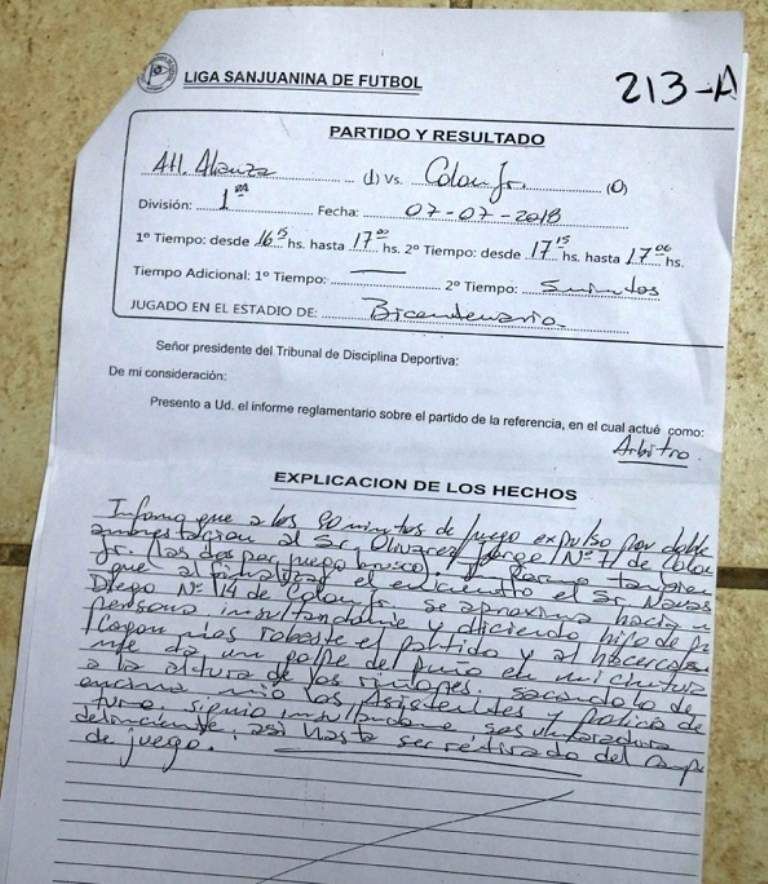 LIGA SANJUANINA DE FUTBOL
213-A
PARTIDO Y RESULTADO
Atl. Alianza (1) Vs. Colon Jr. (0)
División: 1ra Fecha: 07-07-2018
1º Tiempo: desde 16 15 hs. hasta 17 00 hs. 2º Tiempo: desde 17 15 hs. hasta 17 06 hs.
Tiempo Adicional: 1º Tiempo: — 2º Tiempo: 5 minutos
JUGADO EN EL ESTADIO DE: Bicentenario
Señor presidente del Tribunal de Disciplina Deportiva:
De mi consideración:
Presento a Ud. el informe reglamentario sobre el partido de la referencia, en el cual actué como:
Arbitro
EXPLICACION DE LOS HECHOS
Informo que a los 90 minutos de juego expulso por doble
amonestacion al Sr. Olivarez Jorge Nº 7 de Colon
Jr. (las dos por juego brusco). Informo tambien
que al finalizar el encuentro el Sr. Navas
Diego Nº 14 de Colon Jr. se aproxima hacia mi
persona insultandome y diciendo hijo de p
robaste el partido y al hacercarse
me da un golpe de puño en mi
a la altura de los riñones. sacandolo de
encima mio los Asistentes y Policia de
turno. siguio insultandome
delincuente, asi hasta ser retirado del campo
de juego.